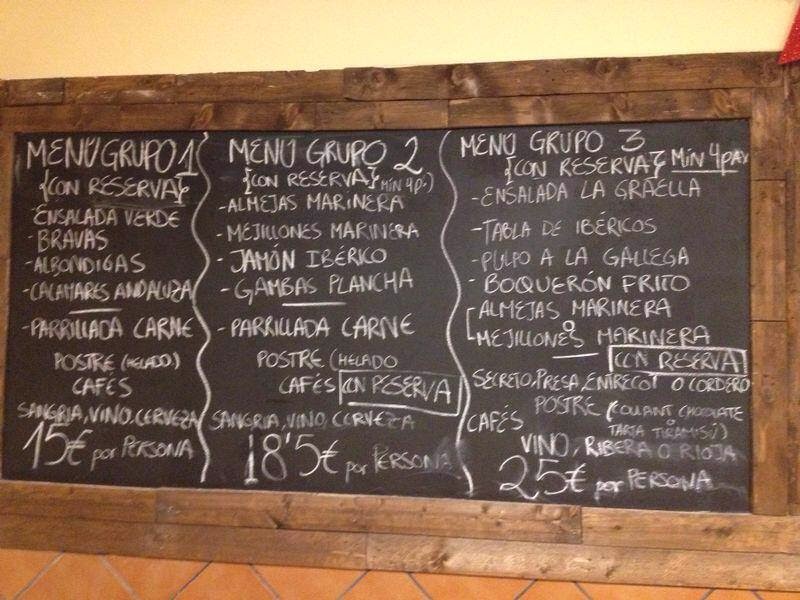 MENÚ GRUPO 1
{CON RESERVA}
ENSALADA VERDE
- BRAVAS
- ALBONDIGAS
- CALAMARES ANDALUZA
- PARRILLADA CARNE
POSTRE (HELADO)
CAFÉS
SANGRIA, VINO, CERVEZA
15€ por PERSONA
MENÚ GRUPO 2
{CON RESERVA} MIN 4p.)
- ALMEJAS MARINERA
- MEJILLONES MARINERA
- JAMÓN IBÉRICO
- GAMBAS PLANCHA
- PARRILLADA CARNE
POSTRE (HELADO
CAFÉS CON RESERVA
SANGRIA, VINO, CERVEZA
18'5€ por PERSONA
MENÚ GRUPO 3
{CON RESERVA} MÍN 4pax
- ENSALADA LA GRAELLA
- TABLA DE IBÉRICOS
- PULPO A LA GALLEGA
- BOQUERÓN FRITO
ALMEJAS MARINERA
O
MEJILLONES MARINERA
CON RESERVA
SECRETO, PRESA, ENTRECOT O CORDERO
POSTRE (COULANT CHOCOLATE
CAFÉS O
TARTA TIRAMISÚ)
VINO, RIBERA O RIOJA
25€ por PERSONA